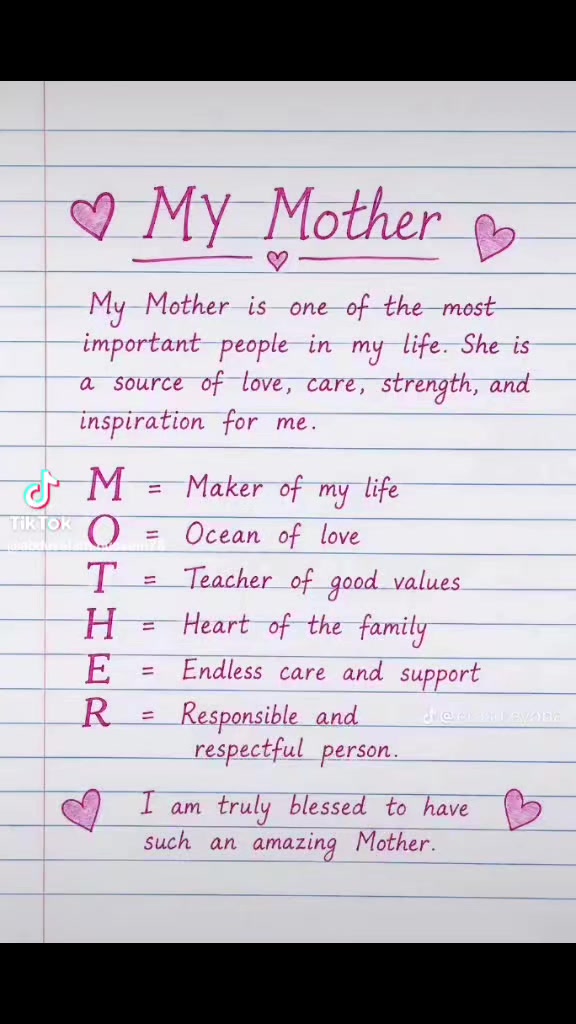 My Mother
My Mother is one of the most
important people in my life. She is
a source of love, care, strength, and
inspiration for me.
M = Maker of my life
O = Ocean of love
T = Teacher of good values
H = Heart of the family
E = Endless care and support
R = Responsible and
respectful person.
I am truly blessed to have
such an amazing Mother.
TikTok